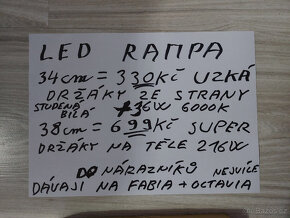 LED RAMPA
34cm = 330KČ UZKÁ
DRŽÁKY ZE STRANY
STUDENÁ BÍLÁ 36W 6000K
38cm = 699KČ SUPER
DRŽÁKY NA TĚLE 216W
DO NÁRAZNÍKŮ NEJVÍCE
DÁVAJÍ NA FABIA + OCTAVIA